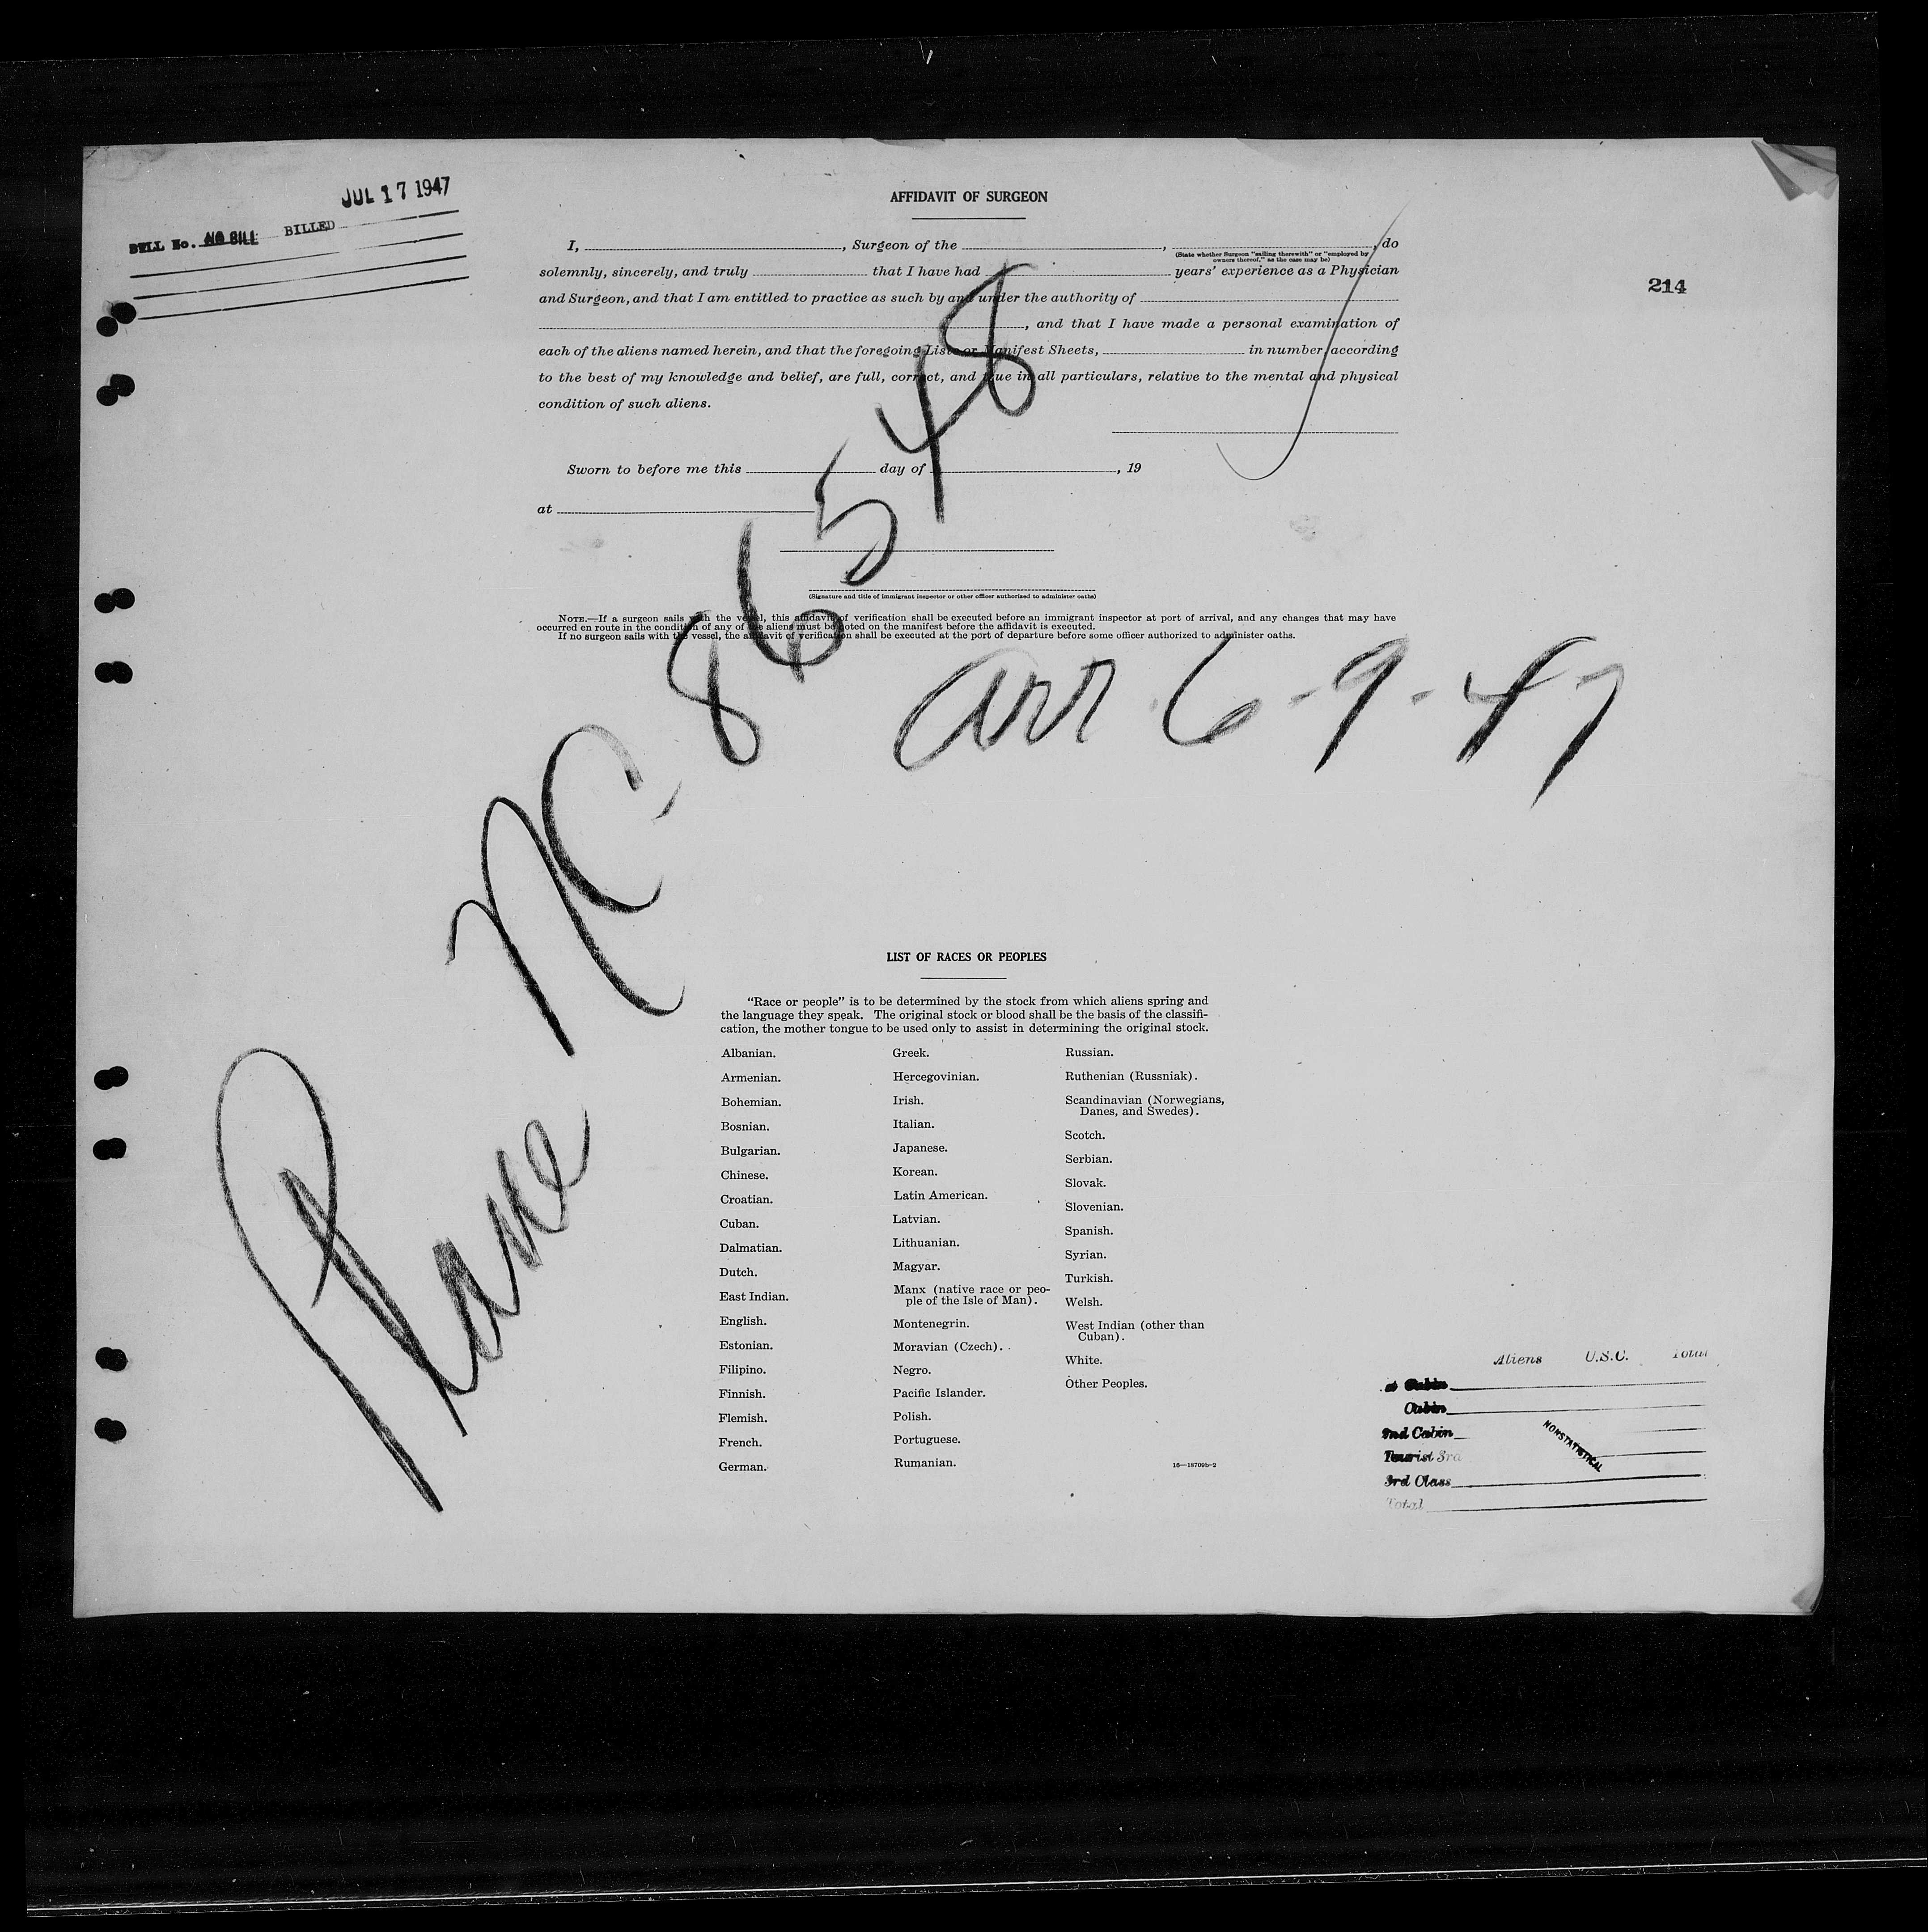 JUL 17 1947
BILL No. NO BILL BILLED
214
AFFIDAVIT OF SURGEON
I, , Surgeon of the , , do
(State whether Surgeon "sailing therewith" or "employed by
owners thereof," as the case may be)
solemnly, sincerely, and truly that I have had years' experience as a Physician
and Surgeon, and that I am entitled to practice as such by and under the authority of
, and that I have made a personal examination of
each of the aliens named herein, and that the foregoing Lists or Manifest Sheets, in number, according
to the best of my knowledge and belief, are full, correct, and true in all particulars, relative to the mental and physical
condition of such aliens.
Sworn to before me this day of , 19
at
(Signature and title of immigrant inspector or other officer authorized to administer oaths)
NOTE.—If a surgeon sails with the vessel, this affidavit of verification shall be executed before an immigrant inspector at port of arrival, and any changes that may have
occurred en route in the condition of any of the aliens must be noted on the manifest before the affidavit is executed.
If no surgeon sails with the vessel, the affidavit of verification shall be executed at the port of departure before some officer authorized to administer oaths.
Plane NC-86548
arr 6-9-47
LIST OF RACES OR PEOPLES
"Race or people" is to be determined by the stock from which aliens spring and
the language they speak. The original stock or blood shall be the basis of the classifi-
cation, the mother tongue to be used only to assist in determining the original stock.
Albanian.
Armenian.
Bohemian.
Bosnian.
Bulgarian.
Chinese.
Croatian.
Cuban.
Dalmatian.
Dutch.
East Indian.
English.
Estonian.
Filipino.
Finnish.
Flemish.
French.
German.
Greek.
Hercegovinian.
Irish.
Italian.
Japanese.
Korean.
Latin American.
Latvian.
Lithuanian.
Magyar.
Manx (native race or peo-
ple of the Isle of Man).
Montenegrin.
Moravian (Czech).
Negro.
Pacific Islander.
Polish.
Portuguese.
Rumanian.
Russian.
Ruthenian (Russniak).
Scandinavian (Norwegians,
Danes, and Swedes).
Scotch.
Serbian.
Slovak.
Slovenian.
Spanish.
Syrian.
Turkish.
Welsh.
West Indian (other than
Cuban).
White.
Other Peoples.
16—18709b-2
Aliens U.S.C. Total
Cabin
Cabin
2nd Cabin
Tourist 3rd
3rd Class
Total
NONSTATISTICAL